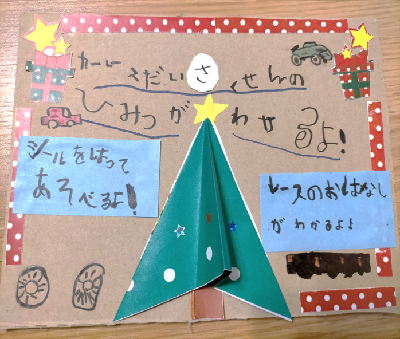 カーレ えだいさ くせんの
ひみつが わかるよ!
シールをはって
あそべるよ!
レースのおはなし
がわかるよ!